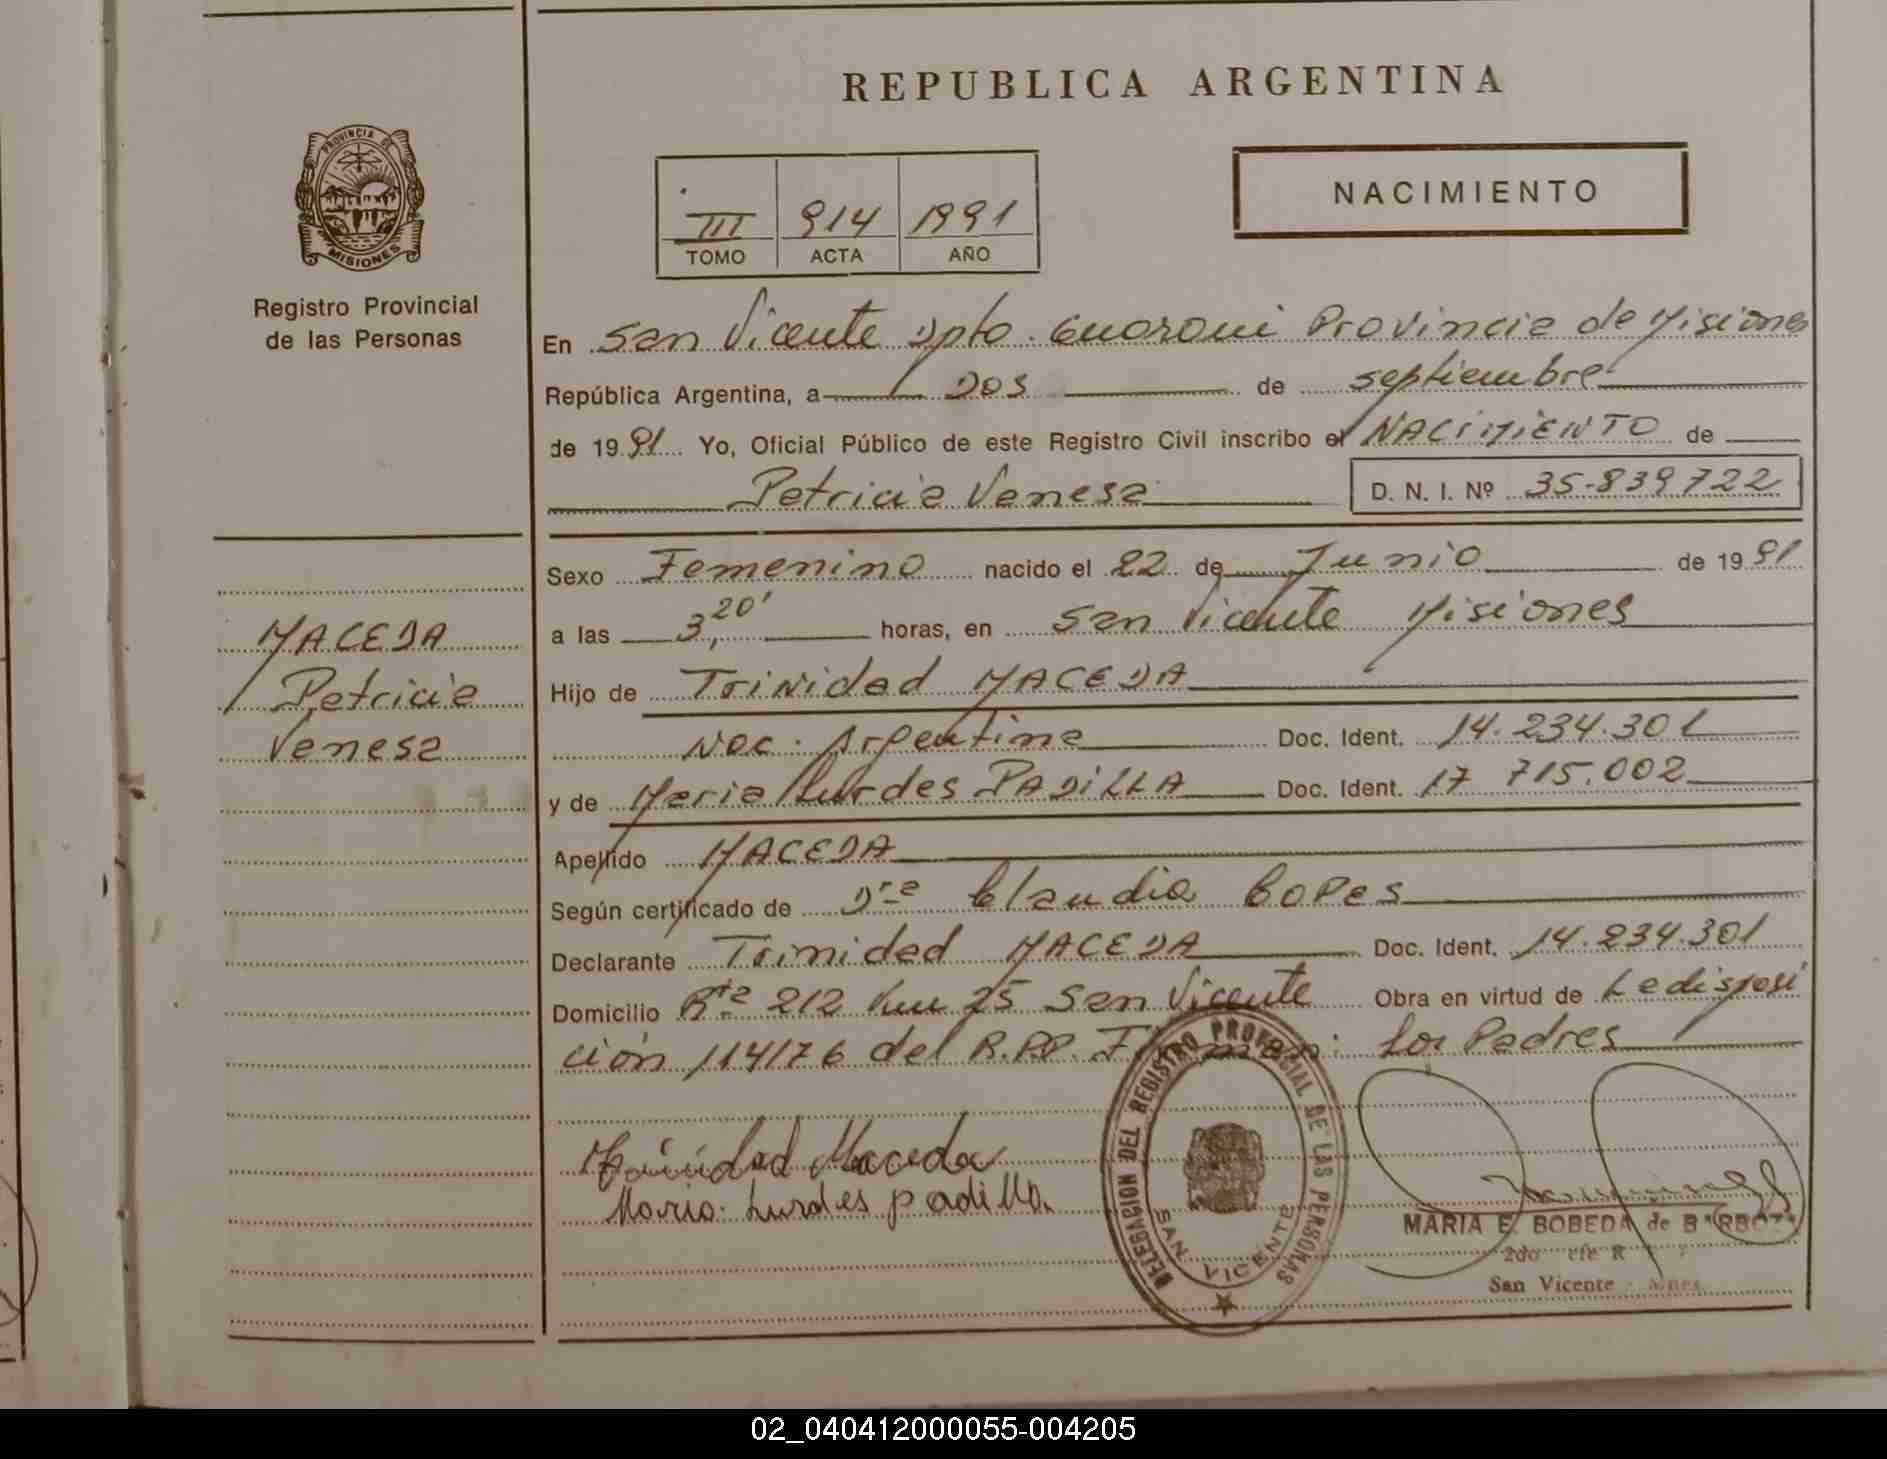 REPUBLICA ARGENTINA
PROVINCIA DE MISIONES
Registro Provincial
de las Personas
NACIMIENTO
III 914 1991
TOMO ACTA AÑO
En San Vicente Dpto. Guaraní Provincia de Misiones
República Argentina, a Dos de septiembre
de 1991 Yo, Oficial Público de este Registro Civil inscribo el NACIMIENTO de
Patricia Vanesa D. N. I. Nº 35.839722
Sexo Femenino nacido el 22 de Junio de 1991
a las 3,20' horas, en San Vicente Misiones
Hijo de Trinidad MACEDA
Nac. Argentina Doc. Ident. 14.234.301
y de Maria Lurdes PADILLA Doc. Ident. 17 715.002
Apellido MACEDA
Según certificado de Dra Claudia Copes
Declarante Trinidad MACEDA Doc. Ident. 14.234.301
Domicilio Rta 212 Km 25 San Vicente Obra en virtud de La disposi
ción 114/76 del R.P.P. Firman: Los Padres
MACEDA
Patricia
Vanesa
Trinidad Maceda
Maria Lurdes padilla.
DELEGACION DEL REGISTRO PROVINCIAL DE LAS PERSONAS
SAN VICENTE
MARIA E. BOBEDA de
2do
San Vicente - Mnes
02_040412000055-004205